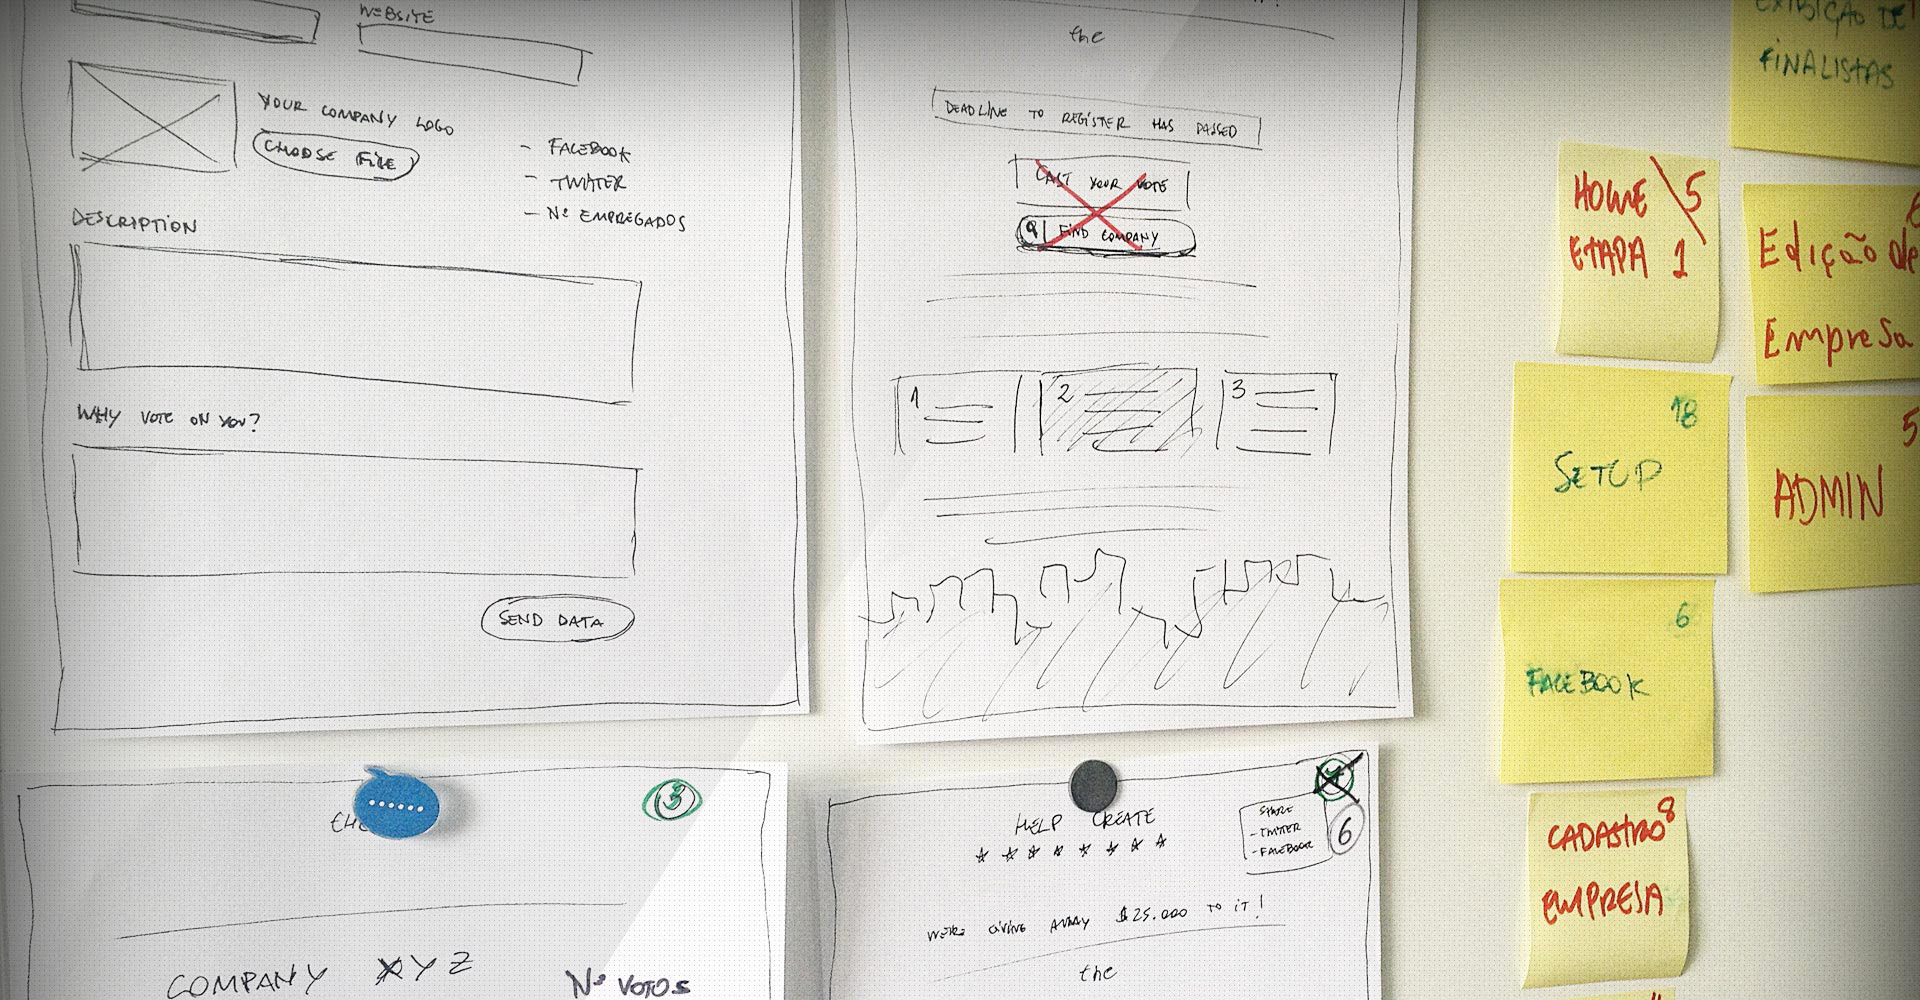 WEBSITE
YOUR COMPANY LOGO
CHOOSE FILE
- FACEBOOK
- TWITTER
- Nº EMPREGADOS
DESCRIPTION
WHY VOTE ON YOU?
SEND DATA
the
DEADLINE TO REGISTER HAS PASSED
CAST YOUR VOTE
FIND COMPANY
1
2
3
3
COMPANY XYZ
Nº VOTOS
HELP CREATE
SHARE
- TWITTER
- FACEBOOK
6
WE'RE GIVING AWAY $25.000 TO IT!
the
EXIBIÇÃO DE
FINALISTAS
HOME 5
ETAPA 1
Edição de
Empresa
18
SETUP
5
ADMIN
6
FACEBOOK
CADASTRO 8
EMPRESA